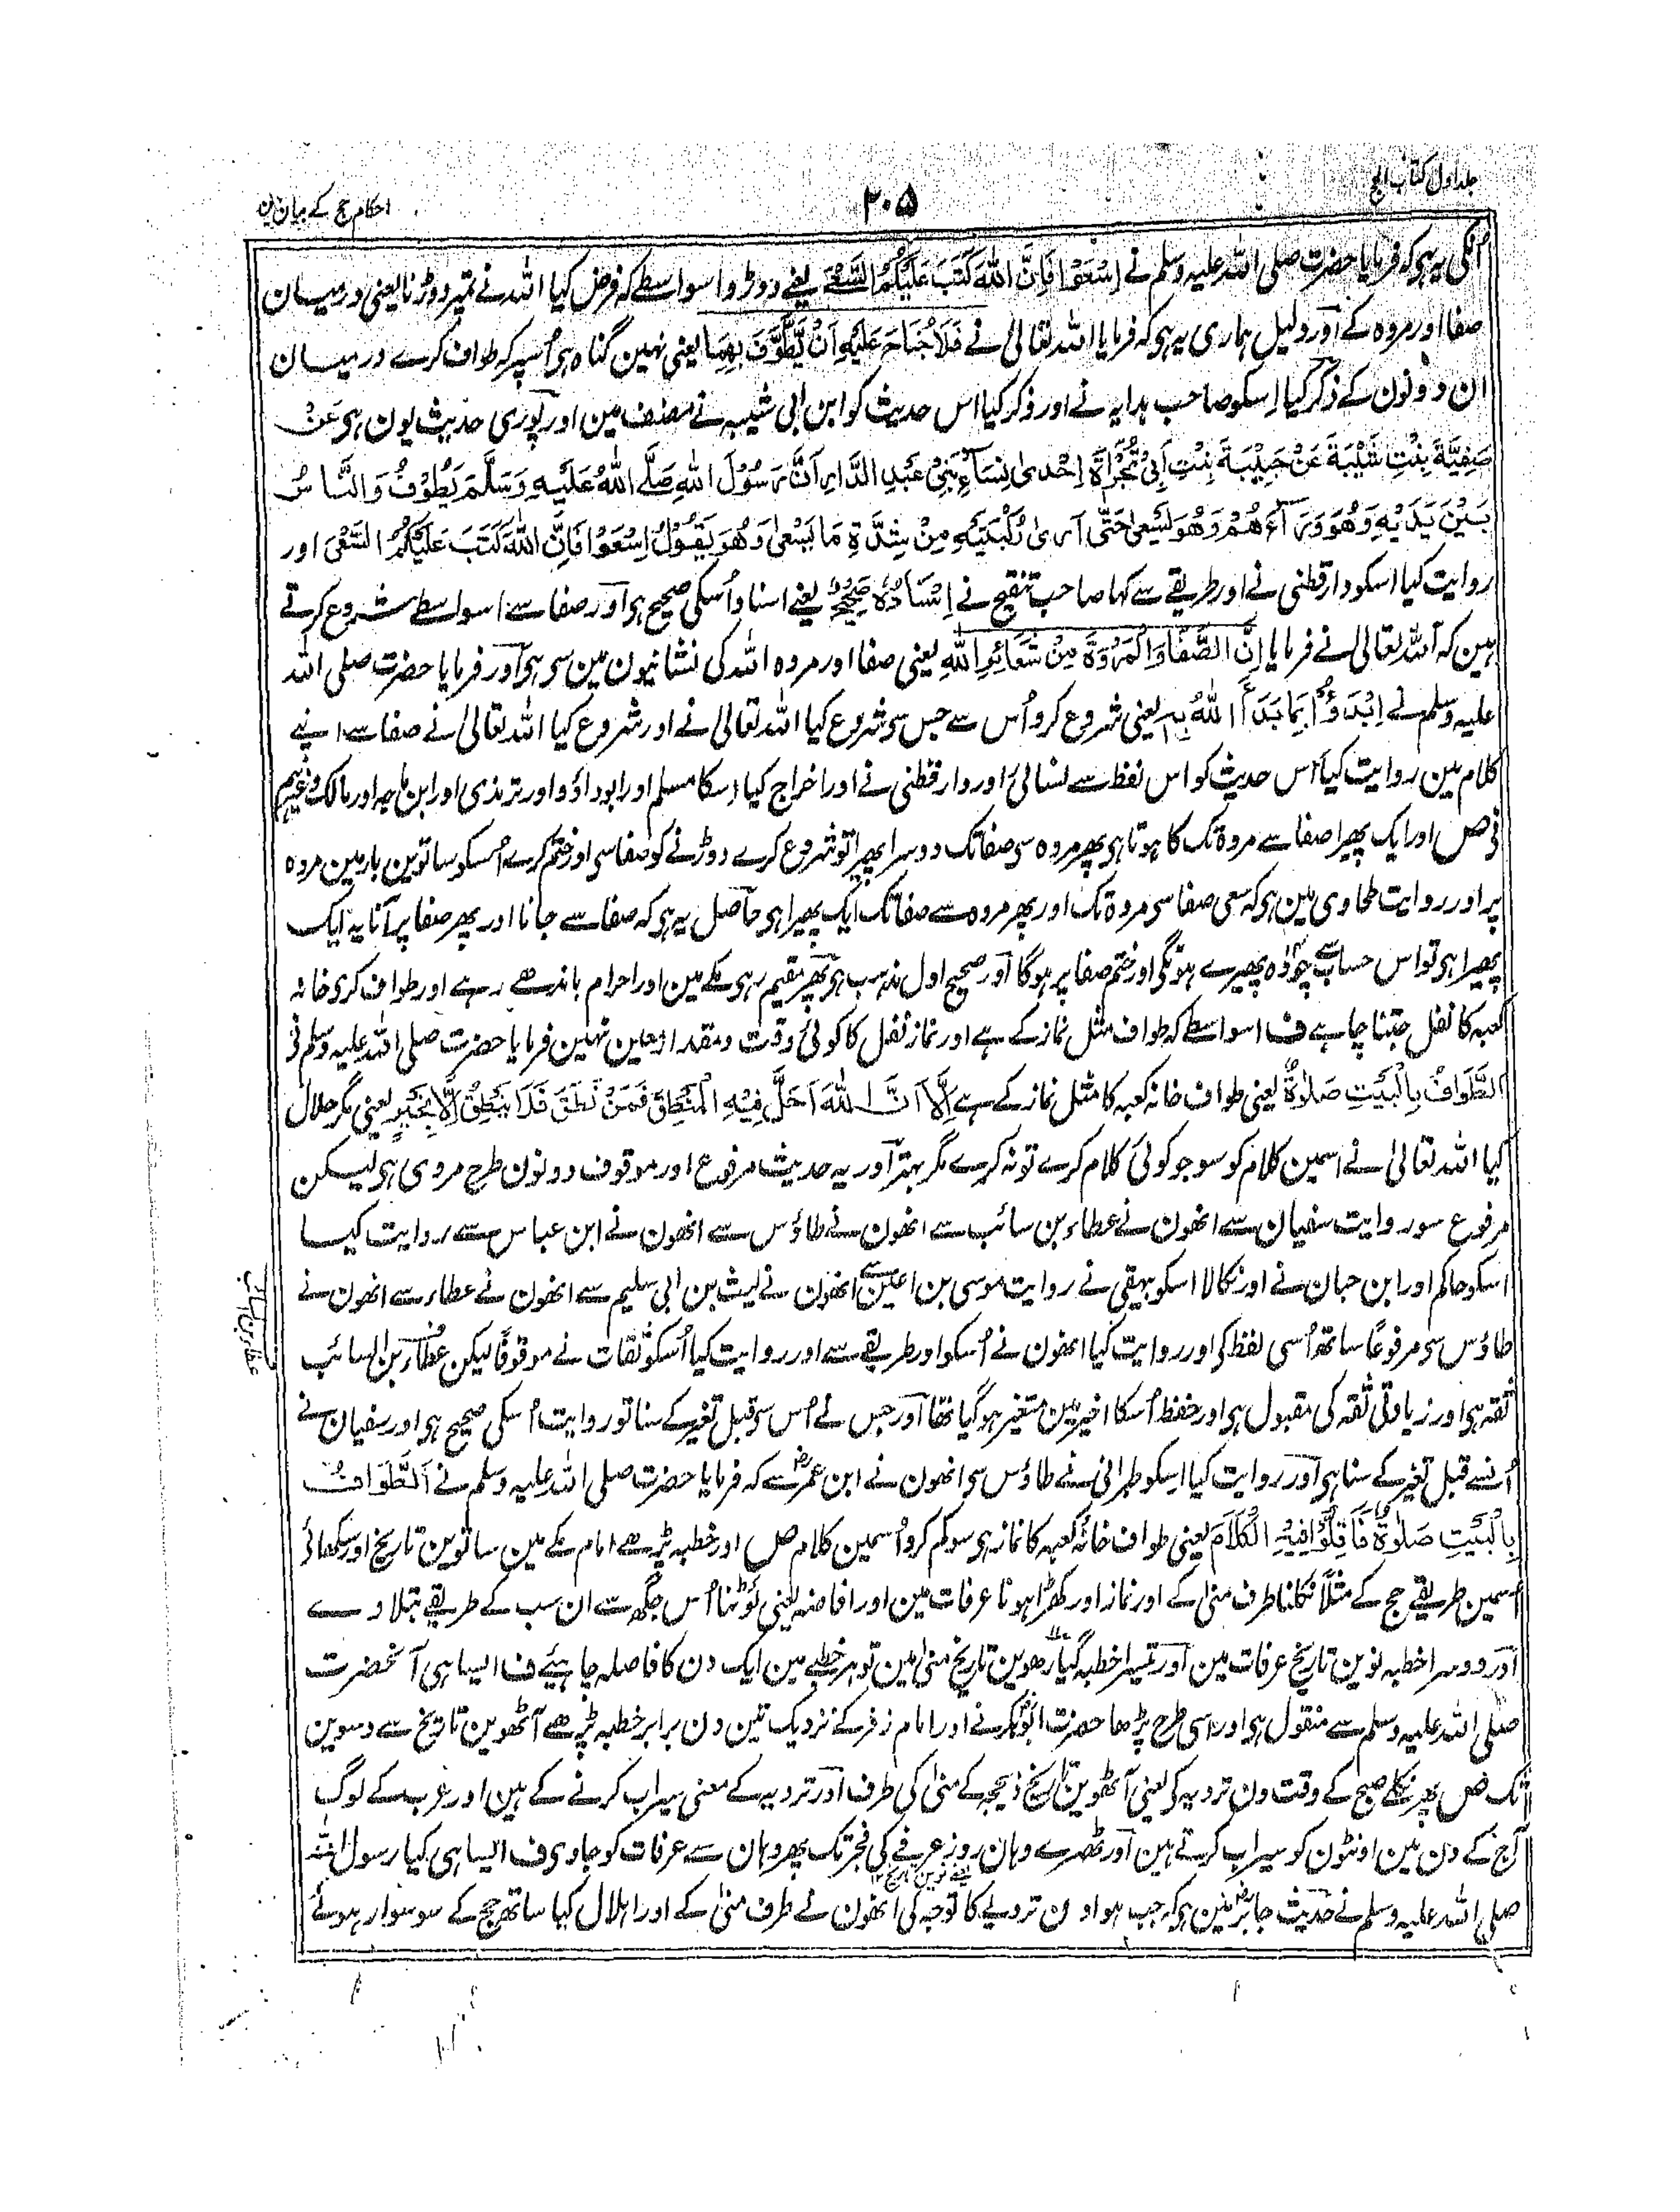 جلد اول کتاب الحج
۲۰۵
احکام حج کے بیان مین
اُنکی یہ ہی کہ فرمایا حضرت صلی اللہ علیہ وسلم نے اِسْعَوْا فَاِنَّ اللهَ كَتَبَ عَلَيْكُمُ السَّعْيَ یعنے دوڑو اسواسطے کہ فرض کیا اللہ نے تمپر دوڑنا یعنی درمیان
صفا اور مروہ کے اور دلیل ہماری یہ ہی کہ فرمایا اللہ تعالیٰ نے فَلَا جُنَاحَ عَلَيْهِ اَنْ يَّطَّوَّفَ بِهِمَا یعنی نہین گناہ ہی اُسپر کہ طواف کرے درمیان
ان دونون کے ذکر کیا اِسکو صاحب ہدایہ نے اور ذکر کیا اس حدیث کو ابن ابی شیبہ نے مصنف مین اور پوری حدیث یون ہی عَنْ
صَفِيَّةَ بِنْتِ شَيْبَةَ عَنْ حَبِيْبَةَ بِنْتِ اَبِيْ تُجْرَاةَ اِحْدىٰ نِسَآءِ بَنِيْ عَبْدِ الدَّارِ اَنَّ رَسُوْلَ اللهِ صَلَّى اللهُ عَلَيْهِ وَسَلَّمَ يَطُوْفُ وَالنَّاسُ
بَيْنَ يَدَيْهِ وَهُوَ وَرَآءَهُمْ وَهُوَ يَسْعىٰ حَتّٰى اَرىٰ رُكْبَتَيْهِ مِنْ شِدَّةِ مَا يَسْعىٰ وَهُوَ يَقُوْلُ اِسْعَوْا فَاِنَّ اللهَ كَتَبَ عَلَيْكُمُ السَّعْيَ اور
روایت کیا اسکو دارقطنی نے اور طریقے سے کہا صاحب تنقیح نے اِسْنَادُهٗ صَحِيْحٌ یعنے اسناد اُسکی صحیح ہی اور صفا سے اسواسطے شروع کرتے
ہین کہ اللہ تعالیٰ نے فرمایا اِنَّ الصَّفَا وَالْمَرْوَةَ مِنْ شَعَآئِرِ اللهِ یعنی صفا اور مروہ اللہ کی نشانیون مین سی ہی اور فرمایا حضرت صلی اللہ
علیہ وسلم نے اِبْدَؤُا بِمَا بَدَأَ اللهُ بِهٖ یعنی شروع کرو اُس سے جس سی شروع کیا اللہ تعالیٰ نے اور شروع کیا اللہ تعالیٰ نے صفا سے اپنے
کلام مین روایت کیا اس حدیث کو اس لفظ سے نسائی اور دارقطنی نے اور اخراج کیا اِسکا مسلم اور ابوداؤد اور ترمذی اور ابن ماجہ اور مالک وغیرہم
نی ص اور ایک پھیرا صفا سے مروۃ تک کا ہوتا ہی پھر مروہ سی صفا تک دوسرا پھیرا تو شروع کرے دوڑنے کو صفا سی اور ختم کرے اُسکو ساتوین بار مین مروہ
پر اور روایت طحاوی مین ہی کہ سعی صفا سی مروۃ تک اور پھر مروہ سے صفا تک ایک پھیرا ہی حاصل یہ ہی کہ صفا سے جانا اور پھر صفا پر آنا یہ ایک
پھیرا ہی تو اس حساب سے چودہ پھیرے ہونگی اور ختم صفا پر ہوگا اور صحیح اول مذہب ہی پھر مقیم رہی مکے مین اور احرام باندھے رہے اور طواف کری خانہ
کعبہ کا نفل جتنا چاہے ف اسواسطے کہ طواف مثل نماز کے ہے اور نماز نفل کا کوئی وقت و مقدار معین نہین فرمایا حضرت صلی اللہ علیہ وسلم نی
اَلطَّوَافُ بِالْبَيْتِ صَلٰوةٌ یعنی طواف خانہ کعبہ کا مثل نماز کے ہے اِلَّا اَنَّ اللهَ اَحَلَّ فِيْهِ الْمَنْطِقَ فَمَنْ نَطَقَ فَلَا يَنْطِقْ اِلَّا بِخَيْرٍ یعنی مگر حلال
کیا اللہ تعالیٰ نے اسمین کلام کو سو جو کوئی کلام کرے تو نہ کرے مگر بہتر اور یہ حدیث مرفوع اور موقوف دونون طرح مروی ہی لیکن
مرفوع سو روایت سفیان سے انھون نے عطاء بن سائب سے انھون نے طاؤس سے انھون نے ابن عباس سے روایت کیا
اسکو حاکم اور ابن حبان نے اور نکالا اسکو بیہقی نے روایت موسی بن اعین سے انھون نے لیث بن ابی سلیم سے انھون نے عطاء سے انھون نے
طاؤس سی مرفوعًا ساتھ اُسی لفظ کی اور روایت کیا انھون نے اُسکو اور طریقے سے اور روایت کیا اُسکو ثقات نے موقوفًا لیکن عطاء بن السائب
ثقہ ہی اور زیادتی ثقہ کی مقبول ہی اور حفظ اُسکا اخیر مین متغیر ہوگیا تھا اور جس نے اُس سی قبل تغیر کے سنا تو روایت اُسکی صحیح ہی اور سفیان نے
اُنسے قبل تغیر کے سنا ہی اور روایت کیا اسکو طبرانی نے طاؤس سی انھون نے ابن عمر سے کہ فرمایا حضرت صلی اللہ علیہ وسلم نے اَلطَّوَافُ
بِالْبَيْتِ صَلٰوةٌ فَاَقِلُّوْا فِيْهِ الْكَلَامَ یعنی طواف خانہ کعبہ کا نماز ہی سو کم کرو اُسمین کلام ص اور خطبہ پڑھے امام مکے مین ساتوین تاریخ اور سکھائے
اُسمین طریقے حج کے مثلًا نکلنا طرف منٰی کے اور نماز اور کھڑا ہونا عرفات مین اور افاضہ یعنی لَوٹنا اُس جگہ سے ان سب کے طریقے بتلا دے
اور دوسرا خطبہ نوین تاریخ عرفات مین اور تیسرا خطبہ گیارھوین تاریخ منٰی مین تو ہر خطبے مین ایک دن کا فاصلہ چاہیئے ف ایسا ہی آنحضرت
صلی اللہ علیہ وسلم سے منقول ہی اور اسی طرح پڑھا حضرت ابوبکر نے اور امام زفر کے نزدیک تین دن برابر خطبہ پڑھے آٹھوین تاریخ سے دسوین
تک ص پھر نکلے صبح کے وقت دن ترویہ کی یعنی آٹھوین تاریخ ذیحجہ کے منٰی کی طرف اور ترویہ کے معنی سیراب کرنے کے ہین اور عرب کے لوگ
آج کے دن مین اونٹون کو سیراب کرتے ہین اور ٹھہرے وہان روز عرفے کی فجر تک پھر وہان سے عرفات کو جاوی ف ایسا ہی کیا رسول اللہ
یعنے نوین تاریخ ۱۲
صلی اللہ علیہ وسلم نے حدیث جابر مین ہی کہ جب ہوا دن ترویے کا توجہ کی انھون نے طرف منٰی کے اور اہلال کیا ساتھ حج کے سو سوار ہوئے